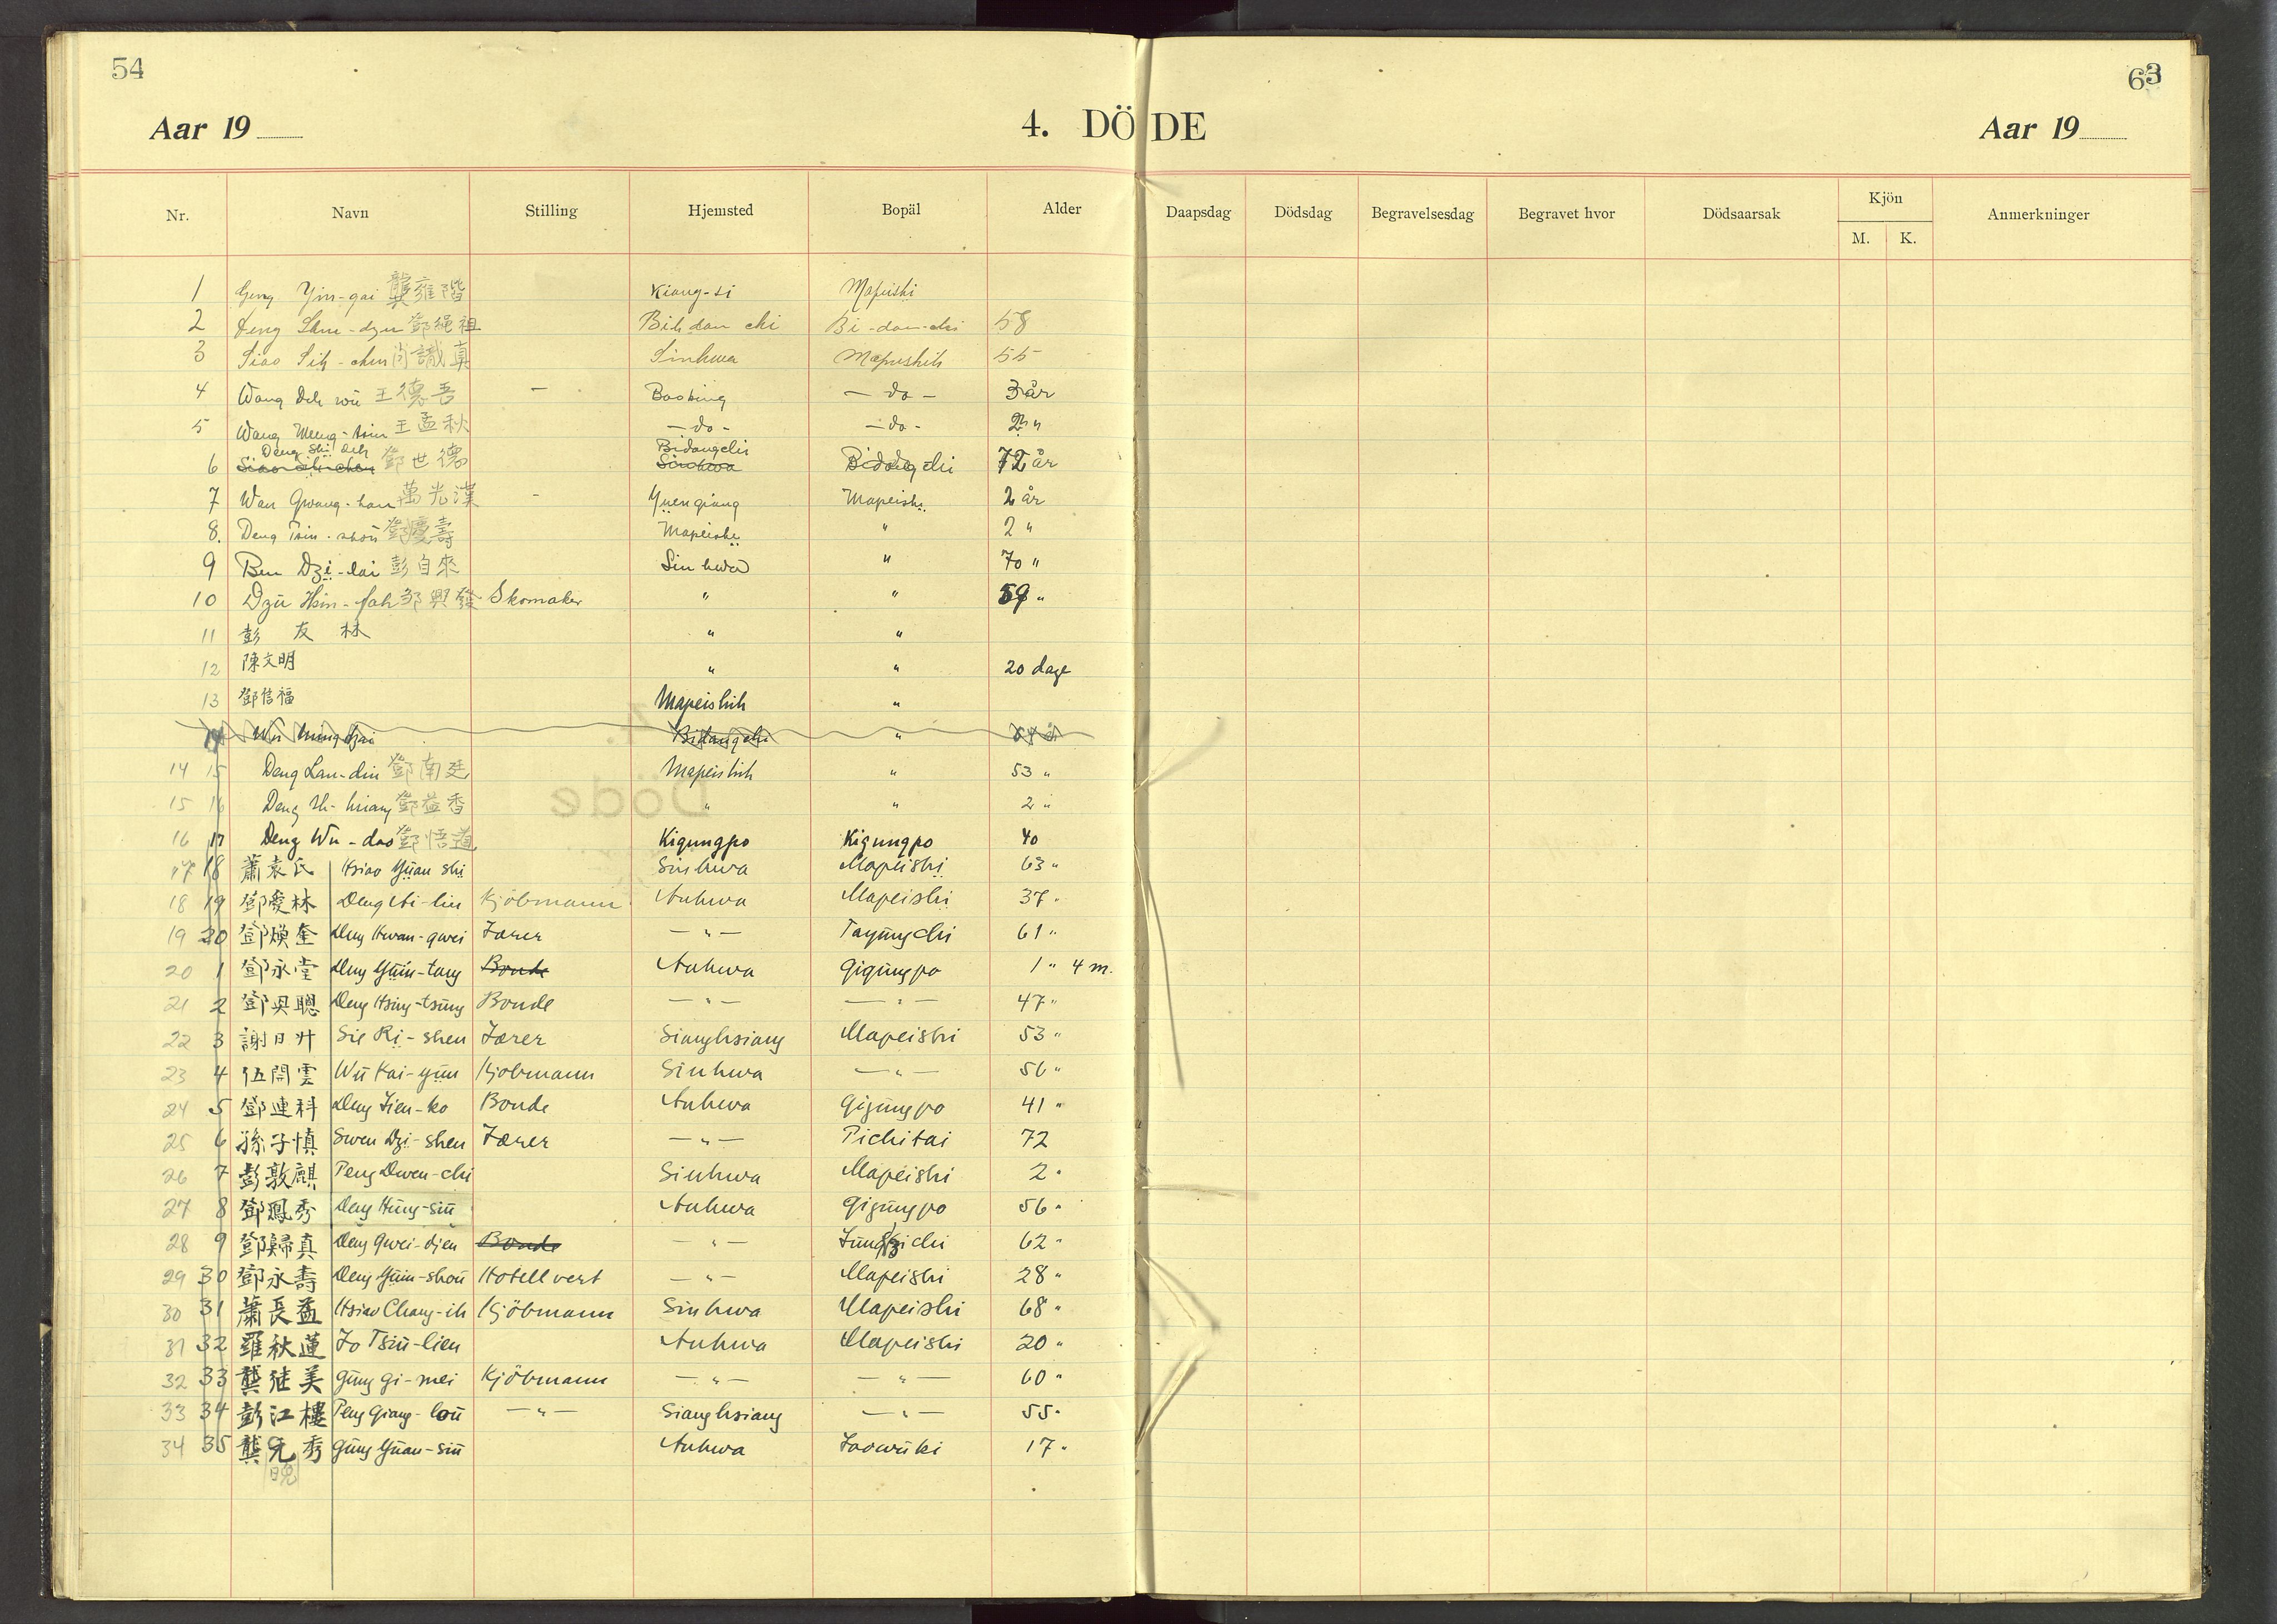 54
63
Aar 19
4. DÖDE
Aar 19
Nr. Navn Stilling Hjemsted Bopäl Alder Daapsdag Dödsdag Begravelsesdag Begravet hvor Dödsaarsak Kjön M. K. Anmerkninger
1 Yin-gai 龔雍階 Kiang-si Mapeishi
2 鄧繩祖 Bih dan chi Bi-dan-chi 58
3 Siao Sih-chen 肖識真 Sinhwa Mapeishih 55
4 Wang Deh wü 王德吾 – Baoking – do – 3 år
5 Wang Meng-tsiu 王孟秋 – do – – do – 2 "
6 Deng Shi Deh 鄧世德 Bidangchi Bidangchi 72 år
7 Wan Gwang-han 萬光漢 – Yuengiang Mapeishi 2 år
8. Deng Tsin-shou 鄧慶壽 Mapeishi " 2 "
9 Ben Dzi-lai 彭自來 Sin hwa " 70 "
10 Dzü Hsin-fah 邹興發 Skomaker " " 59 "
11 彭友林 " "
12 陳文明 " " 20 dage
13 鄧信福 Mapeishih "
14 15 Deng Lan-din 鄧南廷 Mapeishih " 53 "
15 16 Deng Ih-hsiang 鄧益香 " " 2 "
16 17 Deng Wu-dao 鄧悟道 Kigungpo Kigungpo 40
17 18 蕭袁氏 Hsiao Yüan shi Sinhwa Mapeishi 63 "
18 19 鄧愛林 Deng Ai-lin Kjöbmann Anhwa Mapeishi 37 "
19 20 鄧煥奎 Deng Hwan-gwei Lærer – " – Tayüngchi 61 "
20 1 鄧永堂 Deng Yüin-tang Bonde Anhwa Gigüngpo 1 " 4 m.
21 2 鄧興聰 Deng Hsing-tsüng Bonde – " – – " – 47 "
22 3 謝日升 Sie Ri-shen Lærer Sianghsiang Mapeishi 53 "
23 4 伍開雲 Wü Kai-yün Kjöbmann Sinhwa – " – 56 "
24 5 鄧連科 Deng Lien-ko Bonde Anhwa Gigüngpo 41 "
25 6 孫子慎 Swen Dzi-shen Lærer – " – Pichitai 72
26 7 彭敦麒 Peng Dwen-chi Sinhwa Mapeishi 2 "
27 8 鄧鳳秀 Deng Hüng-siü Anhwa Gigüngpo 56 "
28 9 鄧歸真 Deng Gwei-djen Bonde – " – 62 "
29 30 鄧永壽 Deng Yüin-shoü Hotellvert – " – Mapeishi 28 "
30 31 蕭長益 Hsiao Chang-ih Kjöbmann Sinhwa Mapeishi 68 "
31 32 羅秋蓮 Lo Tsiü-lien Anhwa Mapeishi 20 "
32 33 龔继美 Güng Gi-mei Kjöbmann – " – – " – 60 "
33 34 彭江樓 Peng Giang-loü – " – Sianghsiang – " – 55 "
34 35 龔元秀 Güng Yüan-siü Anhwa Laowüki 17 "
晚